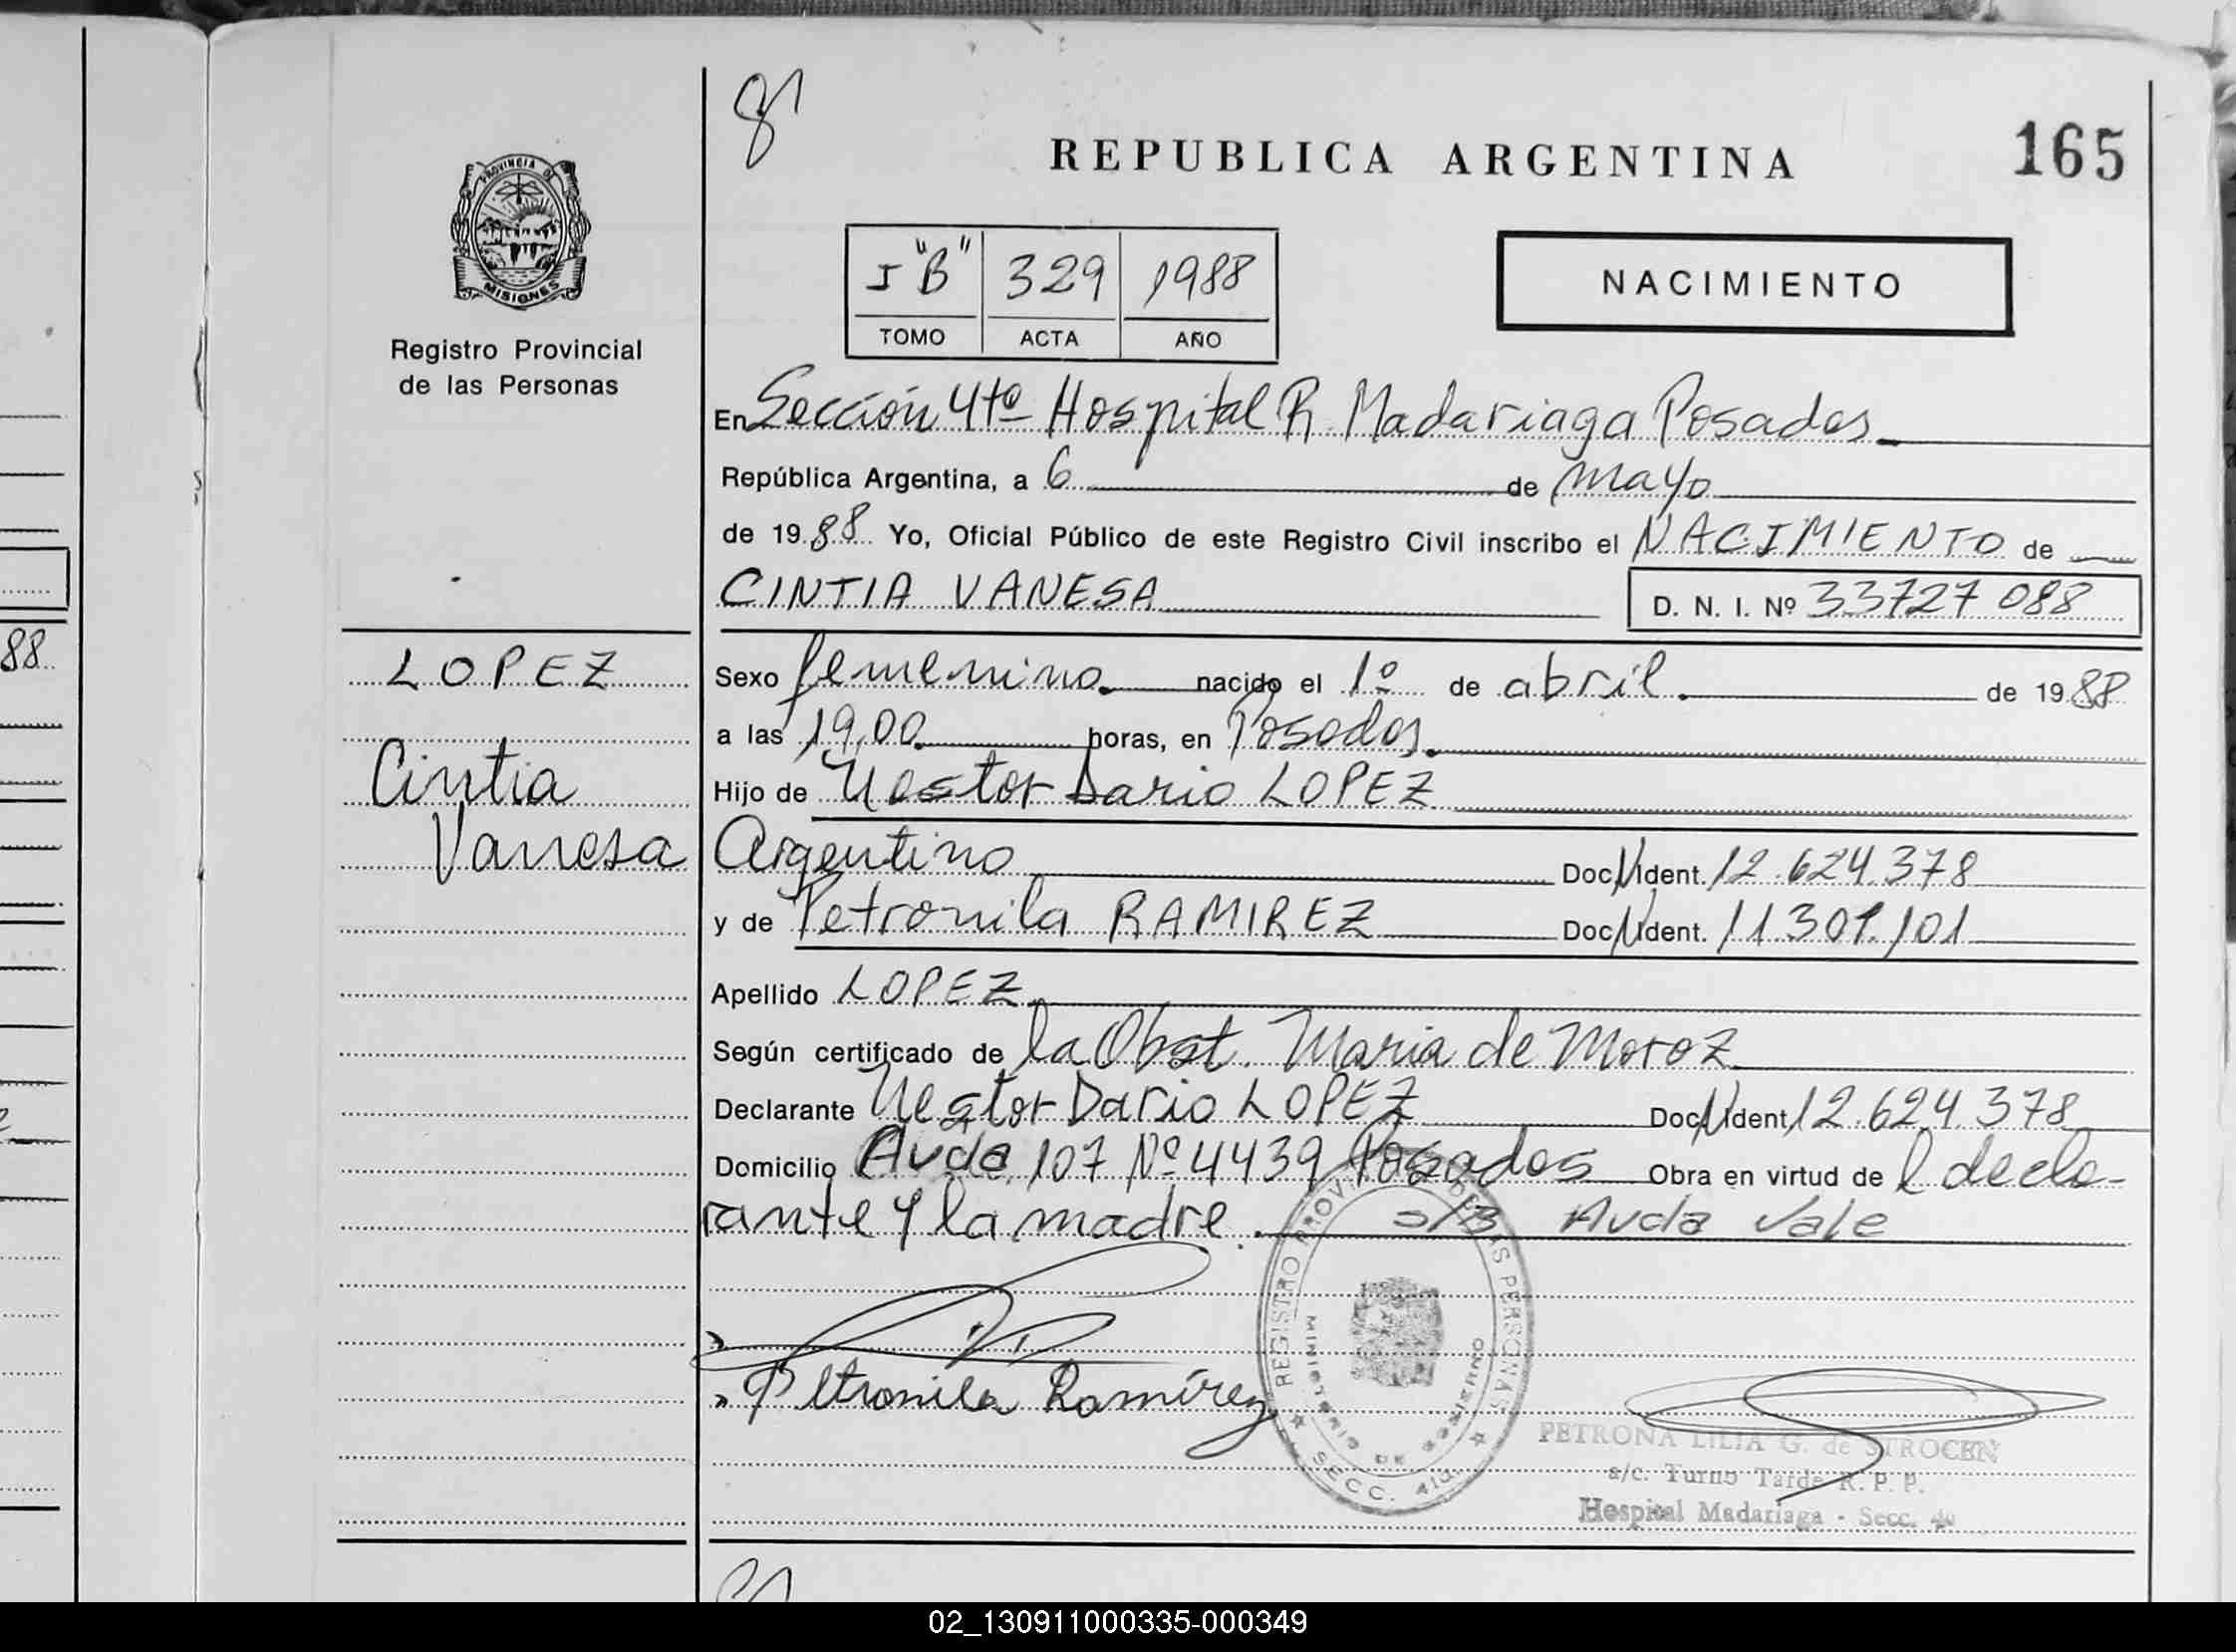 81
REPUBLICA ARGENTINA
165
PROVINCIA DE
MISIONES
Registro Provincial
de las Personas
I "B" 329 1988
TOMO ACTA AÑO
NACIMIENTO
En Sección 4ta Hospital R. Madariaga Posadas
República Argentina, a 6 de mayo
de 1988 Yo, Oficial Público de este Registro Civil inscribo el NACIMIENTO de
CINTIA VANESA
D. N. I. Nº 33727 088
LOPEZ
Cintia
Vanesa
Sexo femenino. nacido el 1º de abril. de 1988
a las 19,00 horas, en Posadas.
Hijo de Nestor Dario LOPEZ
Argentino Doc. Nident. 12.624.378
y de Petronila RAMIREZ Doc. Nident. 11.301.101
Apellido LOPEZ
Según certificado de la Obst. Maria de Moroz
Declarante Nestor Dario LOPEZ Doc. Nident. 12.624.378
Domicilio Avda. 107 Nº 4439 Posadas Obra en virtud de l decla-
rante y la madre. s/B Avda Vale
Petronila Ramírez
REGISTRO PROVINCIAL DE LAS PERSONAS
MINISTERIO DE GOBIERNO
SECC. 4ta.
PETRONA LILIA G. de STROCEN
a/c. Turno Tarde R. P. P.
Hospital Madariaga - Secc. 4a
88
02_130911000335-000349